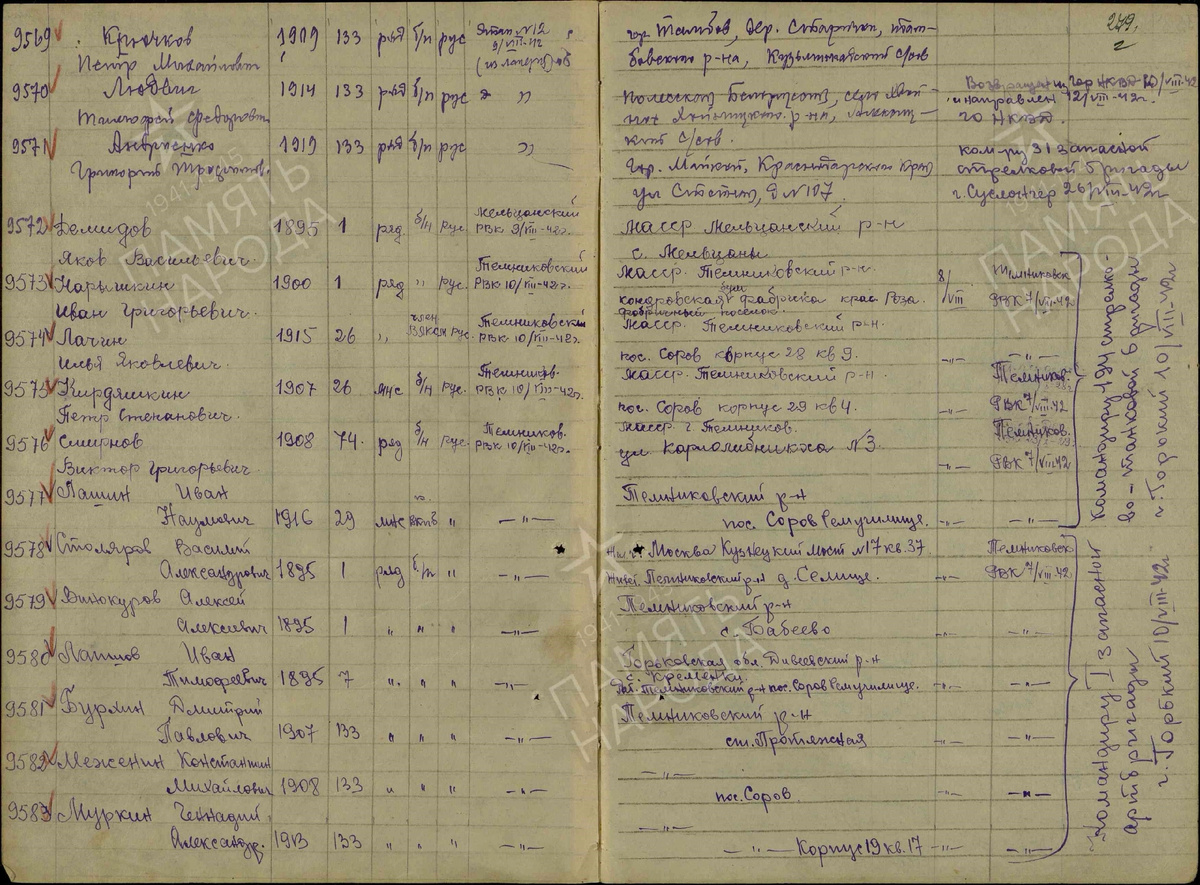 279.
9569 Крючков 1909 133 ряд б/п рус Этап. №12 гор Тамбов, дер. Старчик, Там-
Петр Михайлович 9/VIII-42 бовского р-на, с/сов
9570 Людвиг 1914 133 ряд б/п рус " Полесской Белорусси, Возвращен гор НКВД 10/VIII-42
Тимофей Федорович р-на, и направлен 12/VIII-42г.
9571 Андриенко 1919 133 ряд б/п рус " с/сов. ГО НКВД.
Григорий Гор. Майкоп, Краснодарского края ком-ру 31 запасной
ул Сталина, Д №107. стрелковой бригады
г. Суслонгер 26/VIII-42г
9572 Демидов 1895 1 ряд б/п рус. Мельцанский МАССР Мельцанский р-н
Яков Васильевич. РВК 9/VIII-42г. с. Мельцаны
9573 Нарышкин 1900 1 ряд " рус. Темниковский МАССР. Темниковский р-н. 8/VIII Темниковск
Иван Григорьевич. РВК 10/VIII-42г. кондровская бум фабрика крас Роза. РВК 7/VIII-42
фабричный поселок.
9574 Лачин 1915 26 " член ВЛКСМ рус. Темниковский МАССР. Темниковский р-н.
Илья Яковлевич. РВК 10/VIII-42г. пос. Соров корпус 28 кв 9. —"— —"—
9575 Кирдяшкин 1907 26 мнс б/п рус. Темников. МАССР. Темниковский р-н. Темников.
Петр Степанович. РВК 10/VIII-42г. пос. Соров корпус 29 кв 4. —"— РВК 7/VIII-42
9576 Смирнов 1908 74. ряд б/п рус. Темников. МАССР г. Темников. Темников.
Виктор Григорьевич. РВК 10/VIII-42г. ул Карлалибкнихта №3. —"— РВК 7/VIII-42
9577 Пашин Иван Темниковский р-н
Наумович 1916 29 мнс " —"— пос. Соров Ремучилище. —"— —"—
Командиру стрелко-
во-танковой бригады
г. Горький 10/VIII-42г
9578 Столяров Василий г. Москва Кузнецкий мост №17 кв. 37 Темниковск
Александрович 1895 1 ряд б/п " —"— Темниковский р-н д. Селище. —"— РВК 7/VIII-42
9579 Винокуров Алексей Темниковский р-н
Алексеевич 1895 1 " " " —"— с. Бабеево —"— —"—
9580 Иван Горьковская обл. Дивеевский р-н
с. Кременки.
Тимофеевич 1895 7 " " " —"— Темниковский р-н пос. Соров Ремучилище. —"— —"—
9581 Бурмин Дмитрий Темниковский р-н
Павлович 1907 133 " " " —"— ст. Протяжная —"— —"—
9582 Меженин Константин —"—
Михайлович 1908 133 " " " —"— пос. Соров —"— —"—
9583 Муркин Геннадий —"—
Александр. 1913 133 " " " —"— —"— Корпус 19 кв. 17 —"— —"—
Командиру I запасной
артбригады
г. Горький 10/VIII-42г
ПАМЯТЬ НАРОДА
1941-1945